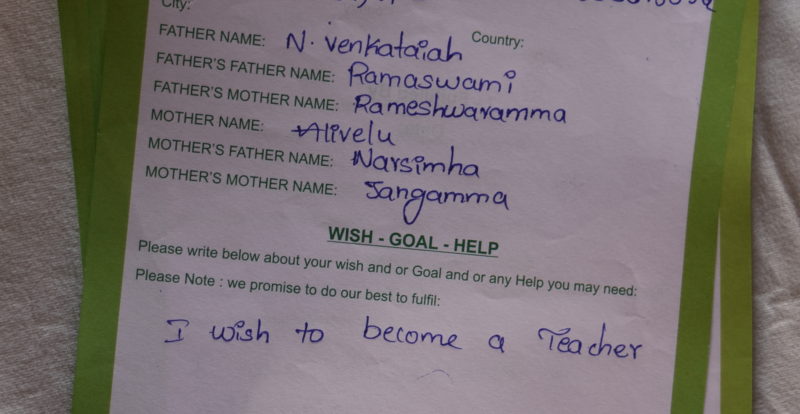 City:
Country:
FATHER NAME: N. Venkataiah
FATHER'S FATHER NAME: Ramaswami
FATHER'S MOTHER NAME: Rameshwaramma
MOTHER NAME: Alivelu
MOTHER'S FATHER NAME: Narsimha
MOTHER'S MOTHER NAME: Jangamma
WISH - GOAL - HELP
Please write below about your wish and or Goal and or any Help you may need:
Please Note : we promise to do our best to fulfil:
I wish to become a Teacher